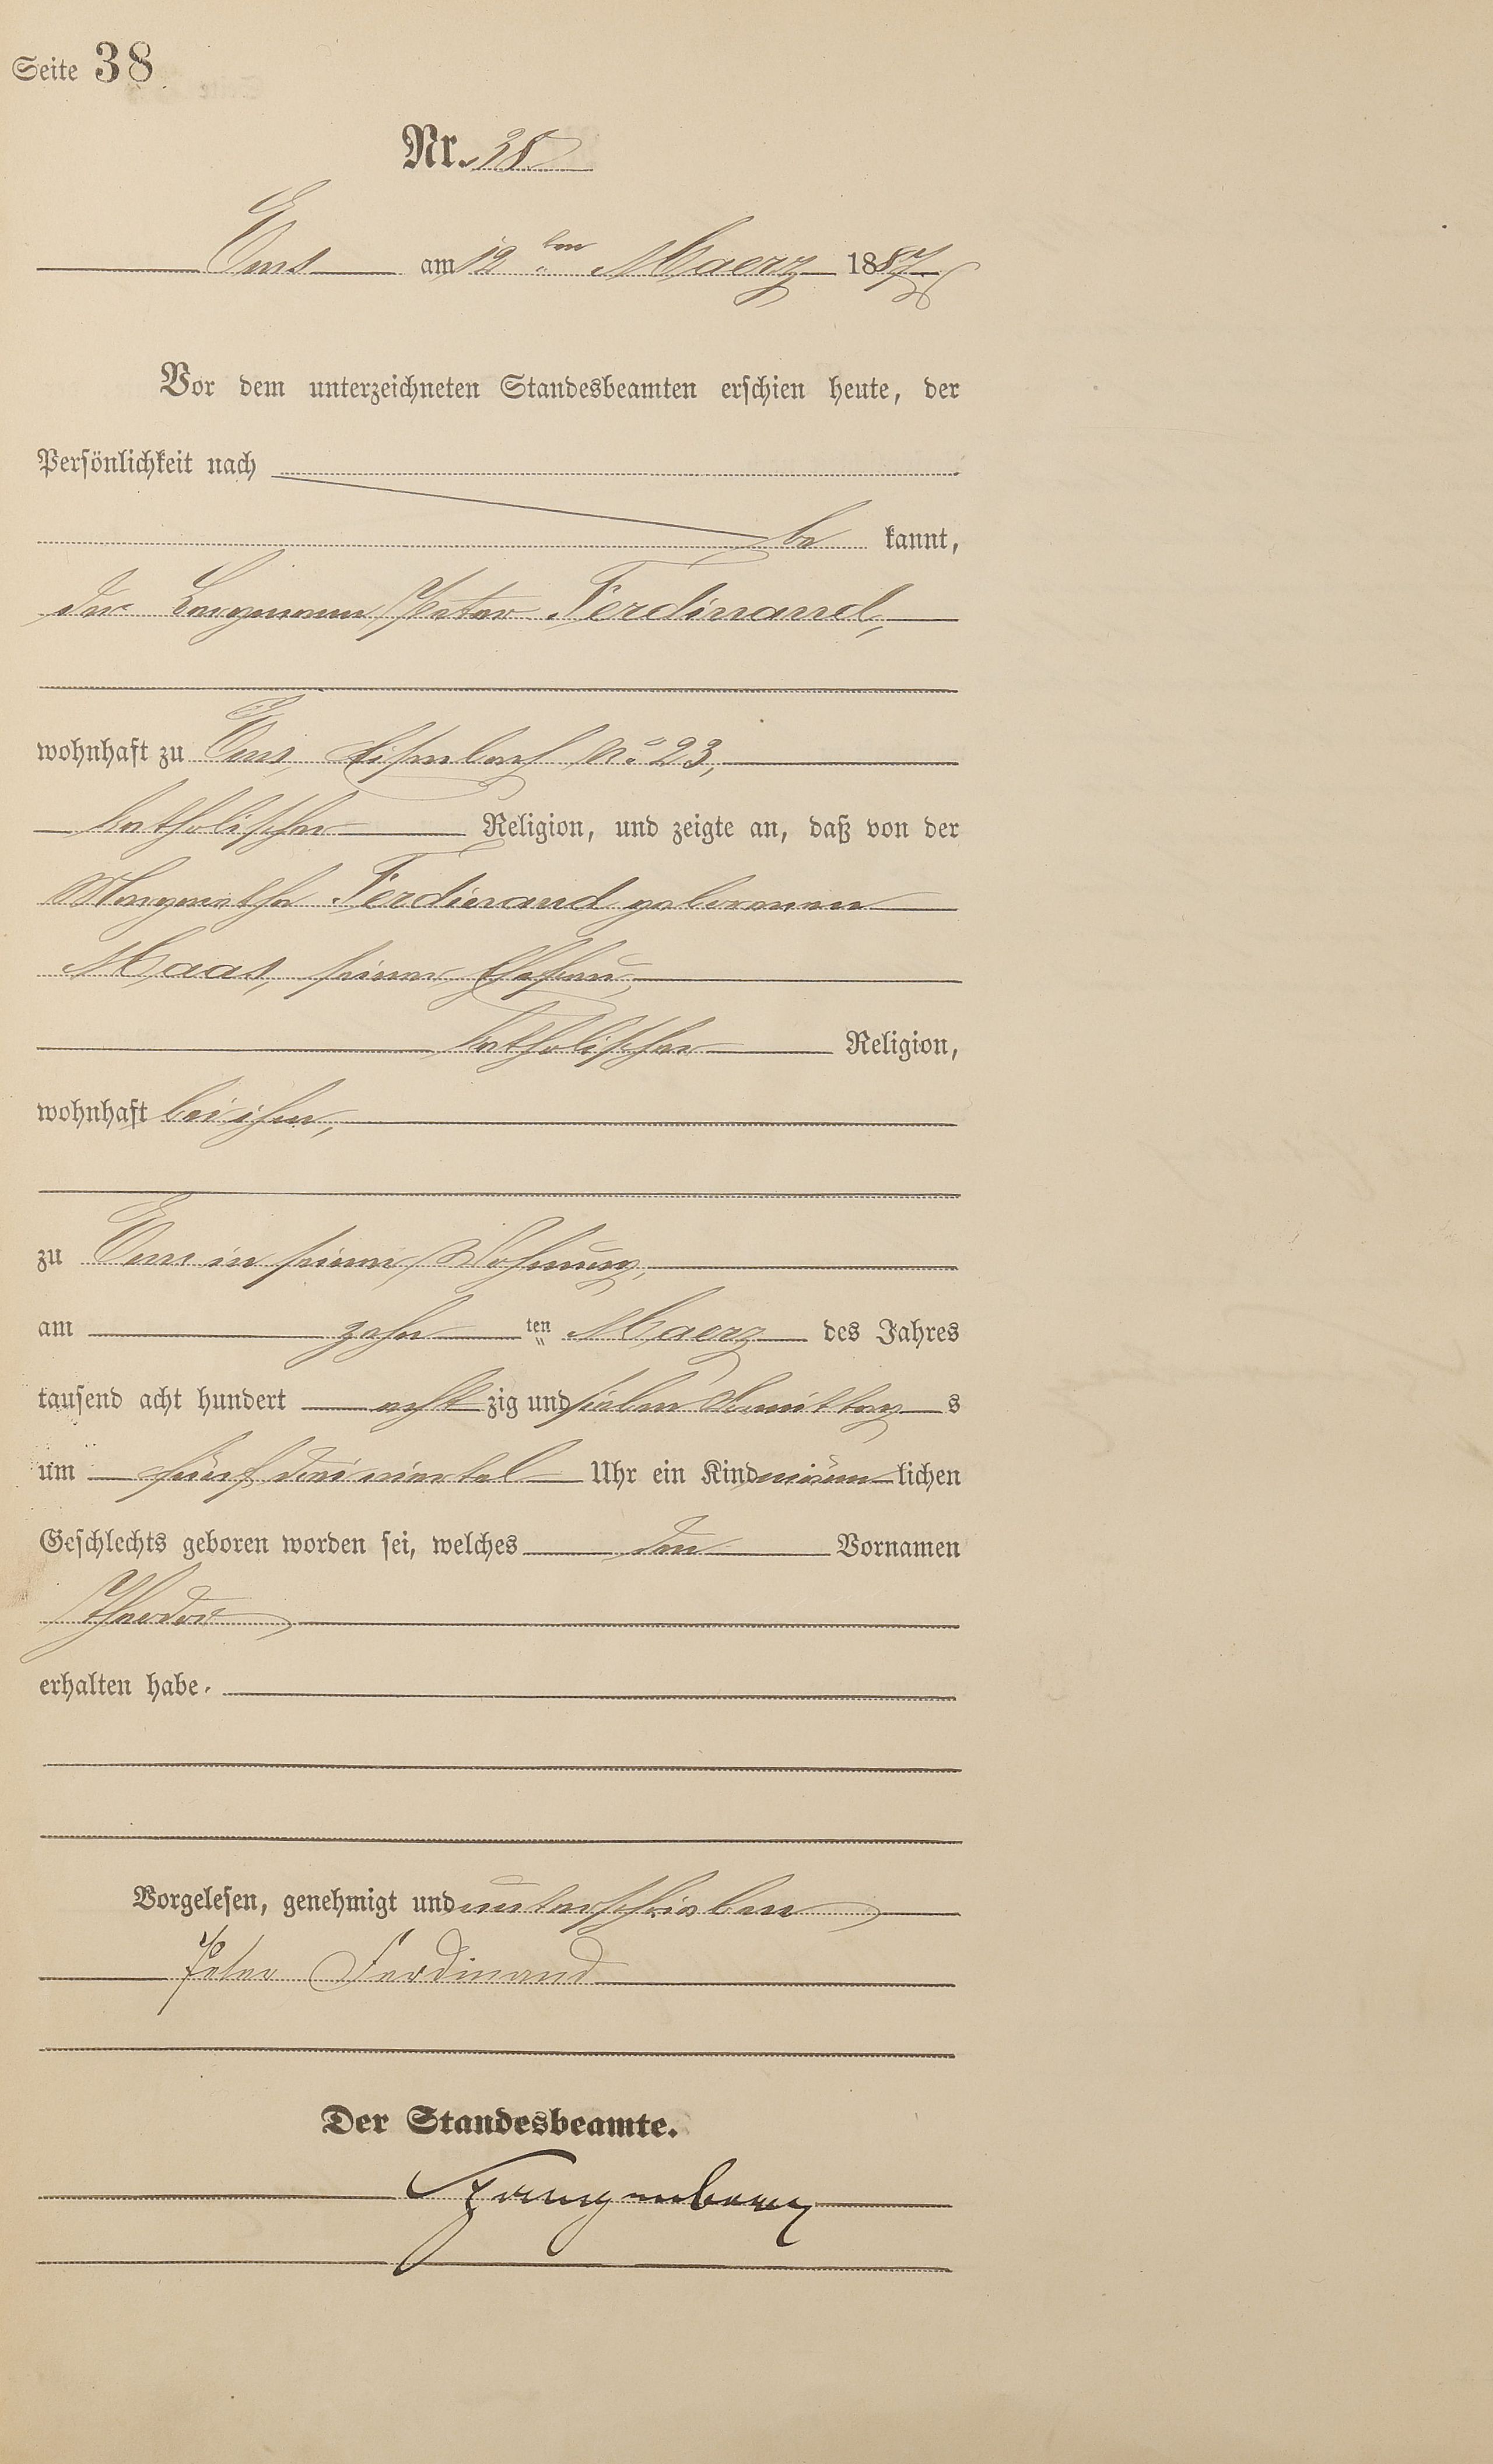 Seite 38
Nr. 38
Ems am 12 ten Maerz 1887
Vor dem unterzeichneten Standesbeamten erschien heute, der
Persönlichkeit nach
be kannt,
der Bergmann Peter Ferdinand,
wohnhaft zu Ems, No 23,
katholischer Religion, und zeigte an, daß von der
Margaretha Ferdinand geborenen
Maas, seiner Ehefrau,
katholischer Religion,
wohnhaft bei ihm,
zu Ems in seiner Wohnung,
am zehn ten Maerz des Jahres
tausend acht hundert acht zig und sieben Vormittag s
um fünf dreiviertel Uhr ein Kind männ lichen
Geschlechts geboren worden sei, welches den Vornamen
Theodor
erhalten habe.
Vorgelesen, genehmigt und unterschrieben
Peter Ferdinand
Der Standesbeamte.